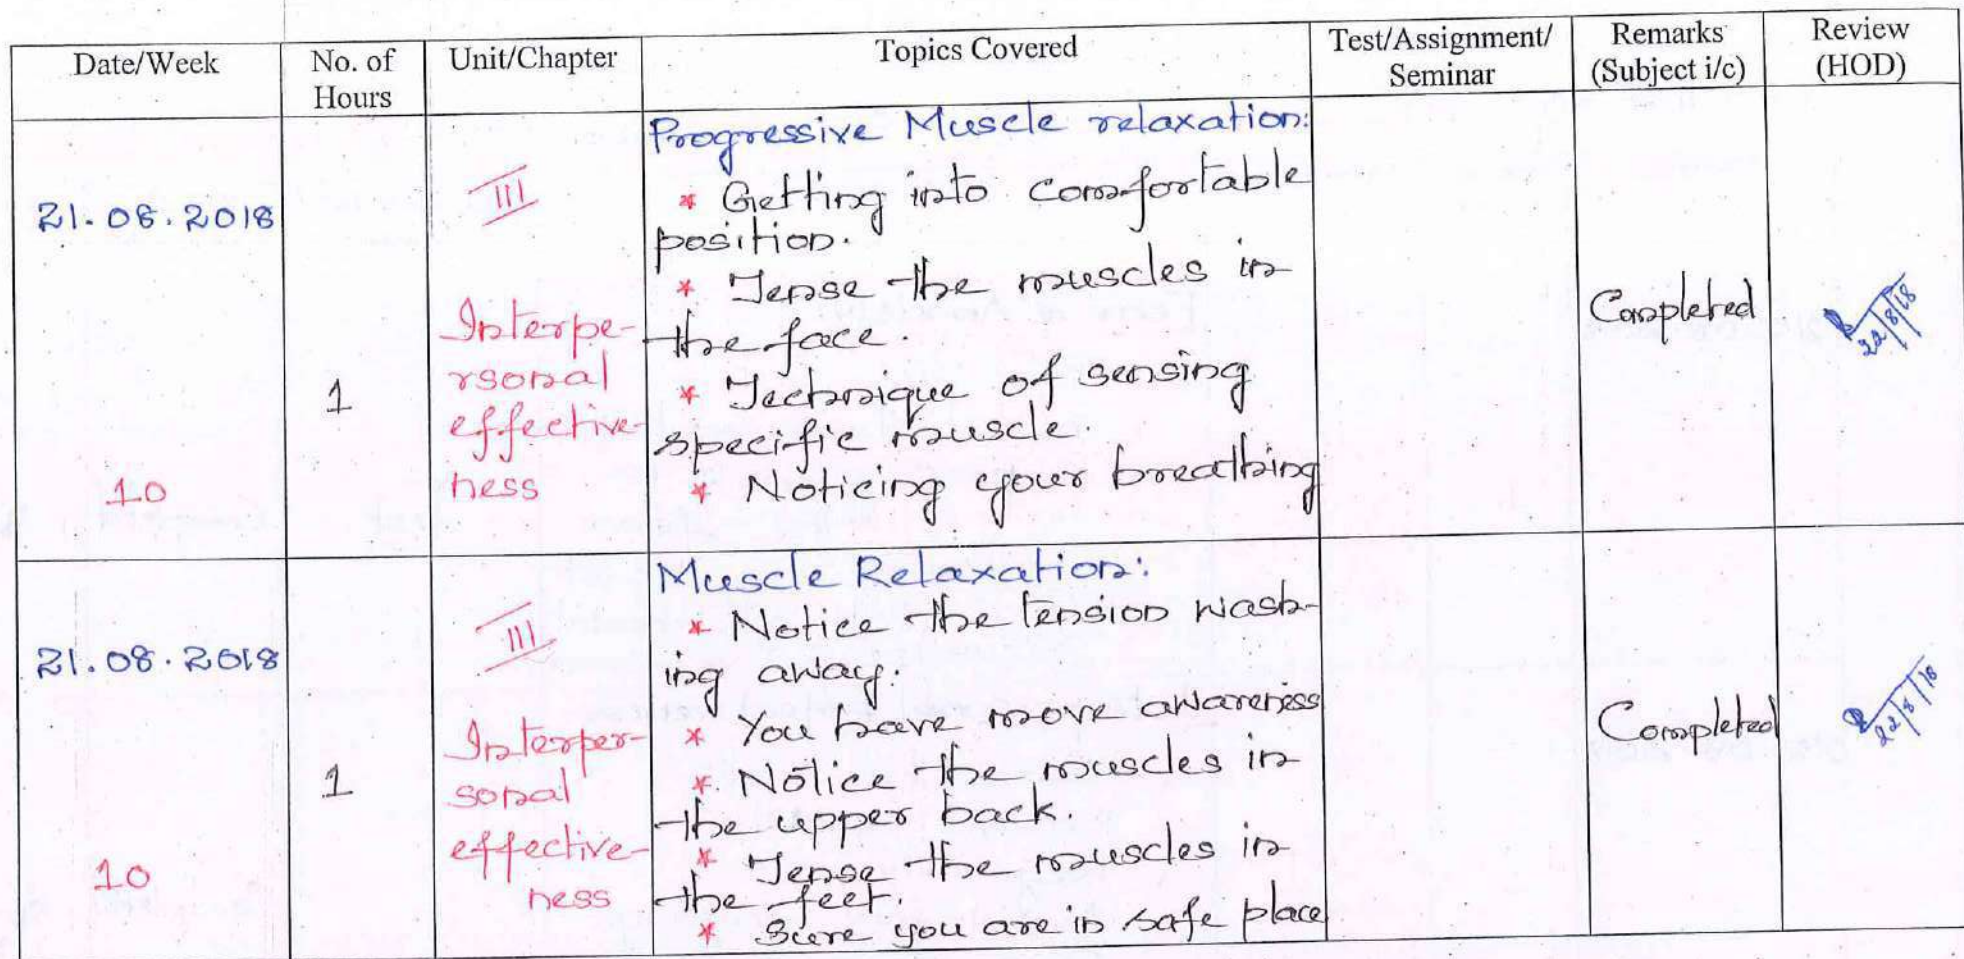 Date/Week No. of Hours Unit/Chapter Topics Covered Test/Assignment/ Seminar Remarks (Subject i/c) Review (HOD)
21.08.2018
10
1
III
Interpe-
rsonal
effective-
ness
Progressive Muscle relaxation:
* Getting into comfortable
position.
* Tense the muscles in
the face.
* Technique of sensing
specific muscle.
* Noticing your breathing
Completed
22/8/18
21.08.2018
10
1
III
Interper-
sonal
effective-
ness
Muscle Relaxation:
* Notice the tension wash-
ing away.
* You have more awareness
* Notice the muscles in
the upper back.
* Tense the muscles in
the feet.
* Sure you are in safe place
Completed
22/8/18